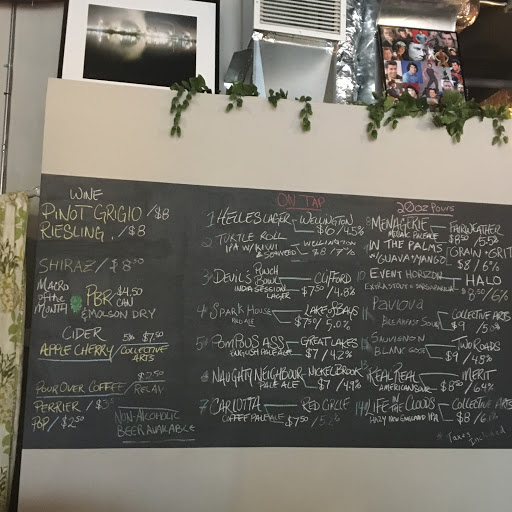 WINE
PINOT GRIGIO / $8
RIESLING . / $8
SHIRAZ / $8.50
MACRO of the MONTH
PBR $4.50 CAN
& MOLSON DRY
CIDER 5% $7.50
APPLE CHERRY / COLLECTIVE ARTS
$2.50
POUR OVER COFFEE / RELAY
PERRIER / $3
POP / $2.50
NON-ALCOHOLIC
BEER AVAILABLE
ON TAP
1 HELLES LAGER - WELLINGTON
$6 / 4.5%
2 TURTLE ROLL - WELLINGTON
IPA W/ KIWI & SEAWEED
3 DEVIL'S PUNCH CLIFFORD
INDIA SESSION LAGER $7.50 / 4.8%
4 SPARK HOUSE LAKE OF BAYS
RED ALE $7.50 / 5.0%
5 POMPOUS ASS GREAT LAKES
ENGLISH PALE ALE $7 / 4.2%
6 NAUGHTY NEIGHBOUR NICKELBROOK
PALE ALE $7 / 4.9%
7 CARLOTTA RED CIRCLE
COFFEE PALE ALE $7.50 / 5.2%
20oz Pours
MENAGERIE FAIRWEATHER
MOSAIC PALE ALE $8.50 / 5.5%
IN THE PALMS GRAIN & GRIT
W/ GUAVA + MANGO $8 / 6%
EVENT HORIZON HALO
$8.50 / 6%
PAVLOVA COLLECTIVE ARTS
BREAKFAST SOUR $9 / 5.0%
SAUVIGNON TWO ROADS
BLANC GOSE $9 / 4.8%
REAL REAL MERIT
AMERICAN SOUR $8 / 6.4%
14 LIFE IN THE CLOUDS COLLECTIVE ARTS
HAZY NEW ENGLAND IPA $8 / 6.1%
* Taxes Included